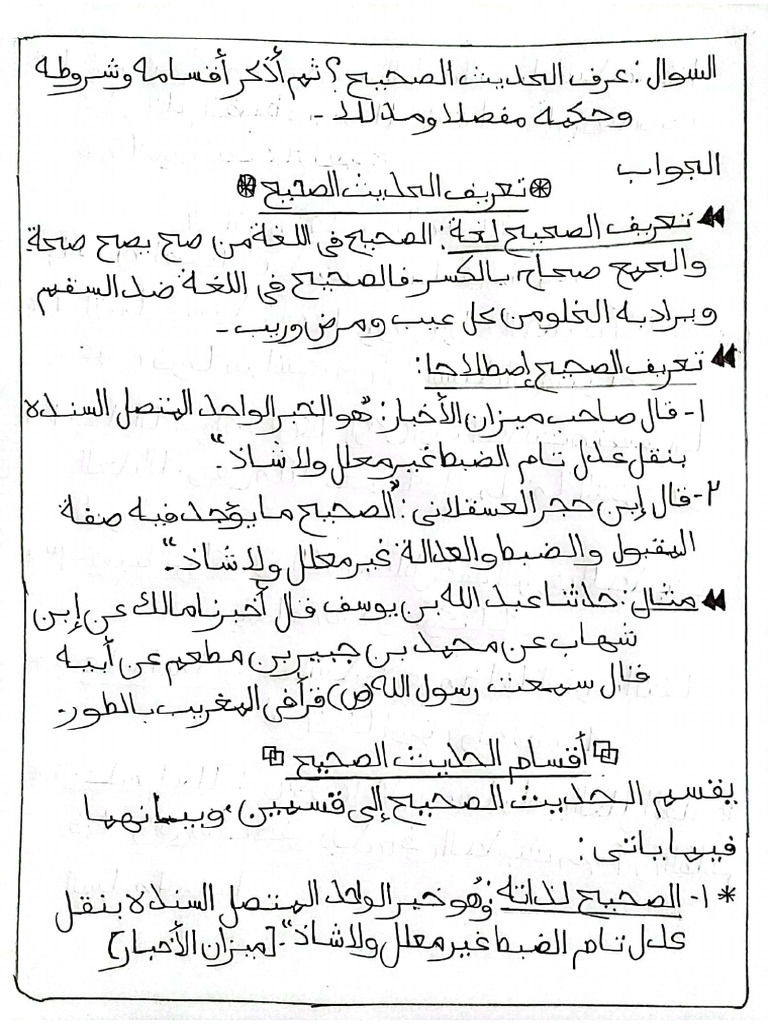 السوال : عرف الحديث الصحيح ؟ ثم أذكر أقسامه وشروطه
وحكمه مفصلا ومدللا -
الجواب
تعريف الحديث الصحيح
تعريف الصحيح لغة : الصحيح في اللغة من صح يصح صحة
والجمع صحاح بالكسر - فالصحيح في اللغة ضد السقيم
ويراد به الخلو من كل عيب ومرض وريب -
تعريف الصحيح إصطلاحا :
١- قال صاحب ميزان الأخبار : "هو الخبر الواحد المتصل السنده
بنقل عدل تام الضبط غير معلل ولا شاذ" -
٢- قال إبن حجر العسقلانى : "الصحيح ما يؤجد فيه صفة
المقبول والضبط والعدالة غير معلل ولا شاذ" -
مثال : حدثنا عبد الله بن يوسف قال أخبرنا مالك عن إبن
شهاب عن محمد بن جبير بن مطعم عن أبيه
قال سمعت رسول الله (ص) قرأ في المغرب بالطور -
أقسام الحديث الصحيح
يقسم الحديث الصحيح إلى قسمين ، وبيانهما
فيما ياتى :
* ١- الصحيح لذاته : "وهو خبر الواحد المتصل السنده بنقل
عدل تام الضبط غير معلل ولا شاذ" - [ميزان الأخبار]